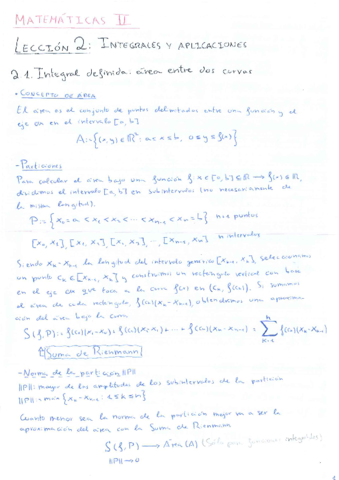 MATEMÁTICAS II
LECCIÓN 2: INTEGRALES Y APLICACIONES
2.1. Integral definida: área entre dos curvas
- CONCEPTO DE ÁREA
El área es el conjunto de puntos delimitados entre una función y el
eje en el intervalo [a, b]
A = {(x, y) ∈ ℝ²: a ≤ x ≤ b, 0 ≤ y ≤ f(x)}
- Particiones
Para calcular el área bajo una función f: x ∈ [a, b] ⊆ ℝ → f(x) ∈ ℝ,
dividimos el intervalo [a, b] en subintervalos (no necesariamente de
la misma longitud).
P = {x₀ = a < x₁ < x₂ < ... < xₙ₋₁ < xₙ = b} puntos
[x₀, x₁], [x₁, x₂], ... [xₙ₋₁, xₙ] n intervalos
Siendo xₖ - xₖ₋₁ la longitud del intervalo genérico [xₖ₋₁, xₖ], seleccionamos
un punto cₖ ∈ [xₖ₋₁, xₖ] y construimos un rectángulo vertical con base
en el eje que toca a la curva f(x) en (cₖ, f(cₖ)). Si sumamos
el área de cada rectángulo, f(cₖ)(xₖ - xₖ₋₁), obtendremos una aproxima
ción del área bajo la curva
S(f, P) = f(c₁)(x₁ - x₀) + f(c₂)(x₂ - x₁) + ... + f(cₙ)(xₙ - xₙ₋₁) = Σ f(cₖ)(xₖ - xₖ₋₁)
Suma de Riemann
- Norma de la partición ||P||
||P|| = mayor de las amplitudes de los subintervalos de la partición
||P|| = max {xₖ - xₖ₋₁ : 1 ≤ k ≤ n}
Cuanto menor sea la norma de la partición mejor va a ser la
aproximación del área con la Suma de Riemann
S(f, P) → Área(A) (Sólo para funciones integrables)
||P|| → 0